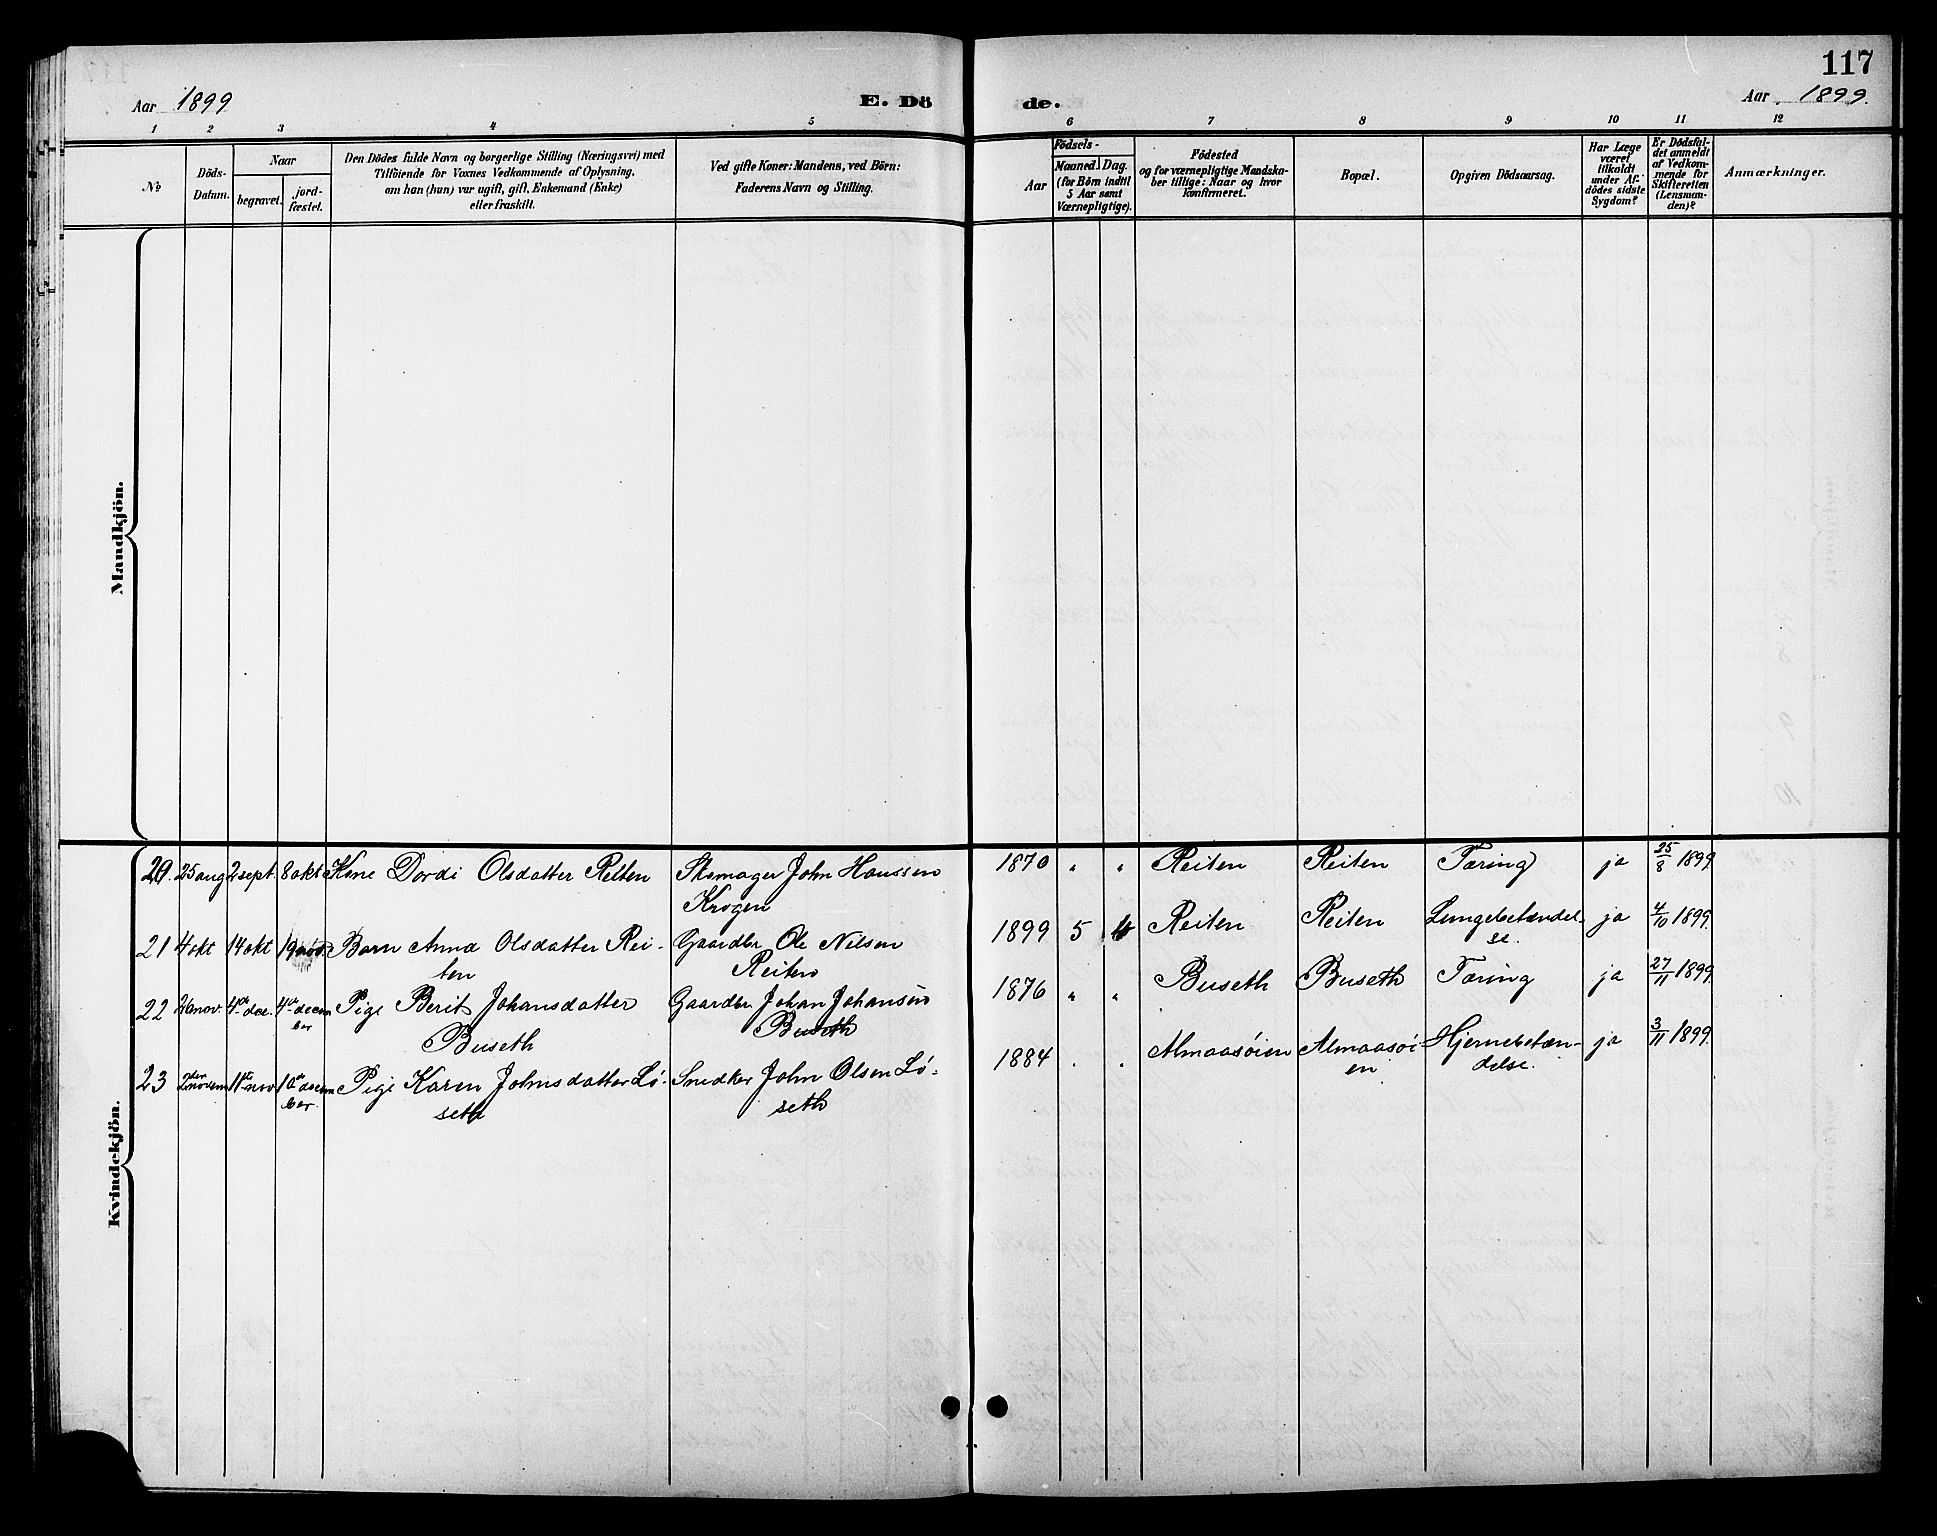 117
Aar 1899
E. Dö
de.
Aar 1899.
1 2 3 4 5 6 7 8 9 10 11 12
No
Döds-
Datum.
Naar
begravet.
jord-
fæstet.
Den Dödes fulde Navn og borgerlige Stilling (Næringsvei) med
Tilföiende for Voxnes Vedkommende af Oplysning,
om han (hun) var ugift, gift, Enkemand (Enke)
eller fraskilt.
Ved gifte Koner: Mandens, ved Börn:
Faderens Navn og Stilling.
Födsels-
Aar
Maaned.
Dag.
(for Börn indtil
5 Aar samt
Værnepligtige).
Födested
og for værnepligtige Mandska-
ber tillige: Naar og hvor
konfirmeret.
Bopæl.
Opgiven Dödsaarsag.
Har Læge
været
tilkaldt
under Af-
dödes sidste
Sygdom?
Er Dödsfal-
det anmeldt
af Vedkom-
mende for
Skifteretten
(Lensman-
den)?
Anmærkninger.
Mandkjön.
Kvindekjön.
20. 25 aug 2 sept. 8 okt Kone Dordi Olsdatter Reiten Skomager John Hanssen 1870 " " Reiten Reiten Tæring ja 25/8 1899
Krogen
21 4 okt 14 okt 19 nov. Barn Anna Olsdatter Rei- Gaardbr Ole Nilsen 1899 5 4 Reiten Reiten Lungebetændel- ja 4/10 1899.
ten Reiten se.
22 nov. 4de dec. 4de decem Pige Berit Johansdatter Gaardbr Johan Johansen 1876 " " Buseth Buseth Tæring ja 27/11 1899.
ber Buseth Buseth
23 novem 11te nov 10de decem Pige Karen Johnsdatter Lø- Snedker John Olsen Lø- 1884 . . Almaasøien Almaasøi Hjernebetæn- ja 3/11 1899.
ber. seth seth en delse.